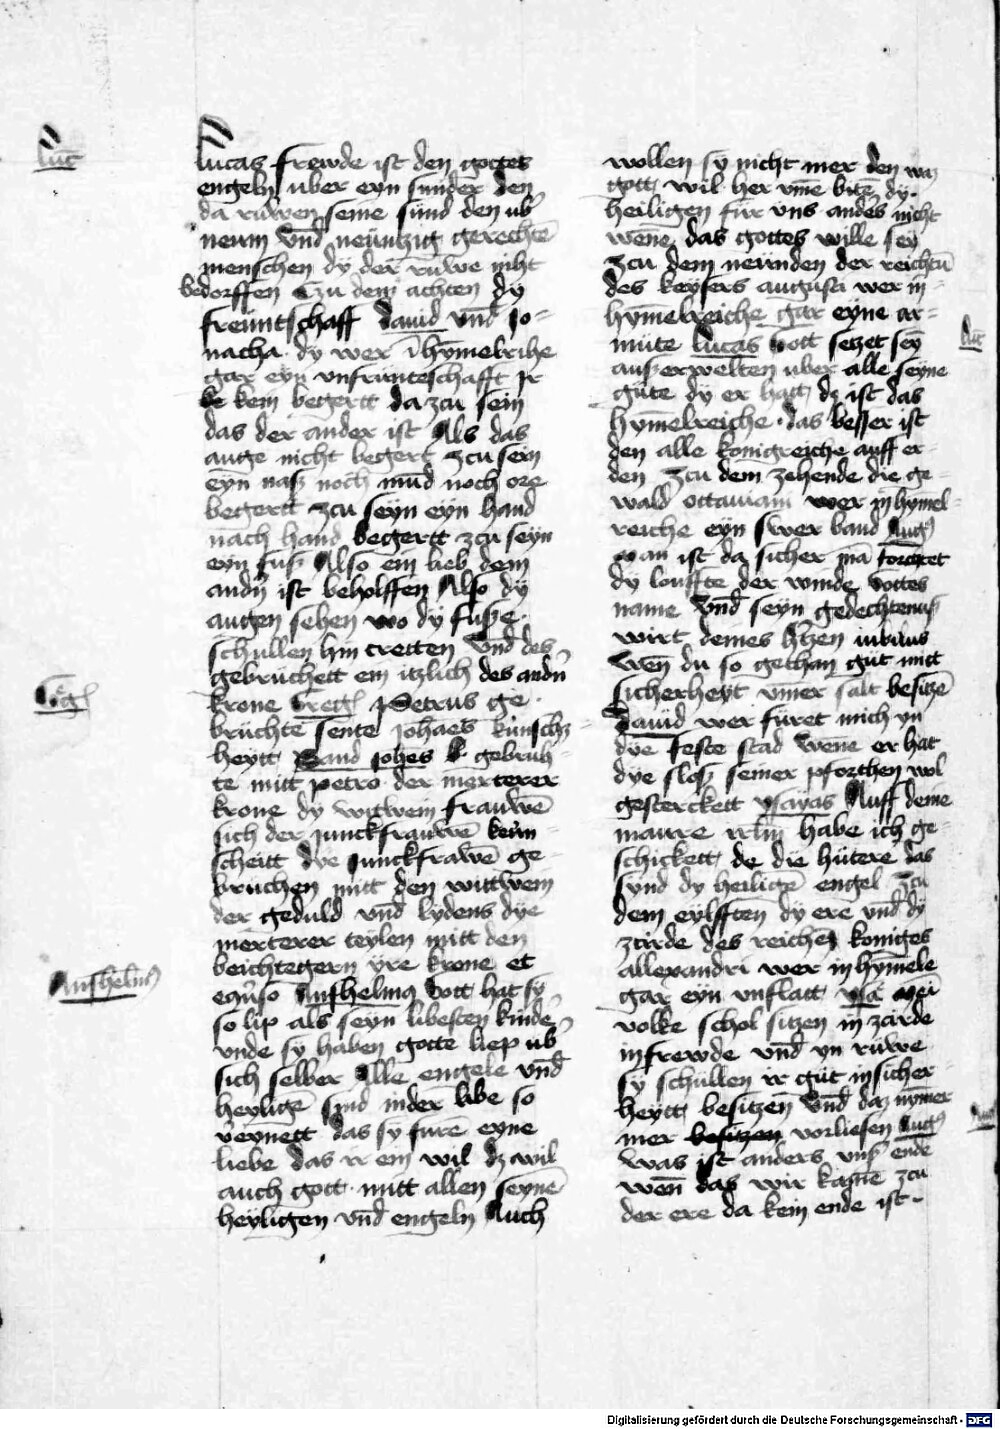 luc̄
lucas frewde ist den gottes
engeln uber eyn sunder den
da rüwen seine sünd den ub'
neum vnd̄ neüntzig gerechtē
menschen dy der rüwe niht
bedorffen Czu dem achten dy
freüntschaff dauid vnd̄ jo-
natha dy wer ī hymelrihe
gar eyn vnfrunteschafft jr
kein begertt da zcu sein
das der ander ist Als das
auge nicht begert zcu sein
eyn nasz noch mūd noch ore
begertt zcu seyn eyn hand
nach hand begertt zcu seyn
eyn fusz Also ein lieb dem
andn̄ ist beholffen Also dy
augen sehen wo dy fusze
schullen hin tretten vnd̄ des
gebrüchett ein itzlich des andn̄
Greg
krone Greg petrus ge-
brüchte sente johaēs künschz-
heytt vand johēs gebruh-
te mitt petro der merterer
krone dy witwein frauwē
sich der junckfrauwē keün-
scheitt dye junckfrawē ge-
brüchen mitt den wittwein
der geduld vnd̄ lydens dye
merterer teylen mitt den
beichtegern yre krone et
Anshelmus
eqūso Anshelmus Gott hat sy
so lip als seyn libesten kinder
vnde sy haben gotte liep ub'
sich selber Alle engele vnd̄
heyligē sind in der libe so
vereynett das sy fure eyne
liebe das ir ein wil dz wil
auch gott mitt allen seynē
heyligen vnd̄ engeln Auch
wollen sy nicht mer den waz
gott wil her vmē bitē dy
heiligen für vns anders nicht
wēne das gottes wille sey
zcu dem neünden der reichtū
des keysers augusti wer in-
hymelreiche gar eyne ar-
mute lucas Gott setzet sey
luc̄
auszerwelten uber alle seyne
güte dy er hatt dz ist das
hymelreiche das besser ist
den alle konigreiche auff er-
den zcu dem zehende die ge-
wald octauiani wer in hymel-
reiche eyn swer band Aug
wan ist da sicher mā forchtet
dy louffte der winde Gottes
name vnd̄ seyn gedechtenusz
wirt deines hr̄zen iubilus
wen du so gethan güt mitt
sicherheyt vmer salt besitzē
Dauid wer füret mich yn
dye feste stad wēne er hat
dye slosz seiner pforthen wol
gesterckett ysayas Auff deine
maure irlm̄ habe ich ge-
schickett de die hütere das
synd dy heiligē engel zcu
dem eylfften dy ere vnd̄ dy
zcirde des reichen koniges
allexandri wer in hymele
gar eyn vnflatt ysa mei
volke schol sitzen in zcirde
in frewde vnd̄ yn rüwe
sy schüllen ir güt in sicher-
heytt besitzen vnd̄ daz nymer
mer besitzen vorliesen Aug
Aug
was ist anders vnsz ende
wen das wir kamē zcu
der ere da kein ende ist
Digitalisierung gefördert durch die Deutsche Forschungsgemeinschaft - DFG